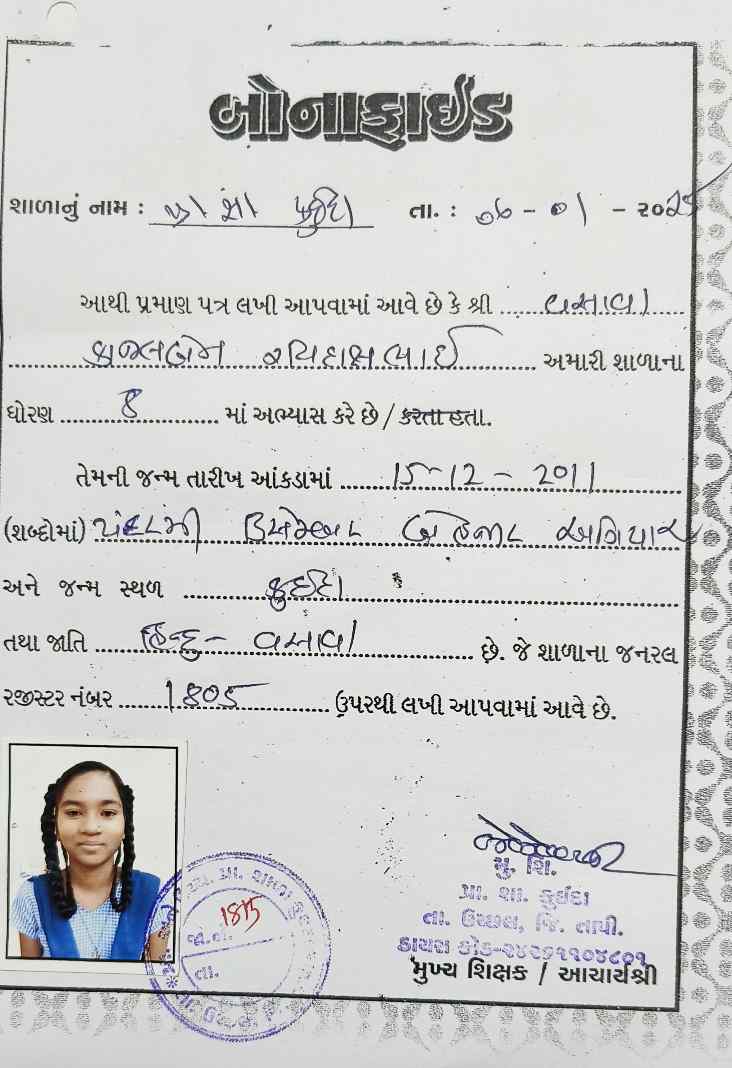 બોનાફાઈડ
શાળાનું નામ : પ્રા શા કુઈદા તા. : ૦૬ - ૦૧ - ૨૦૨૫
આથી પ્રમાણ પત્ર લખી આપવામાં આવે છે કે શ્રી વસાવા
કાજલબેન રવિદાસભાઈ અમારી શાળાના
ધોરણ 8 માં અભ્યાસ કરે છે / કરતા હતા.
તેમની જન્મ તારીખ આંકડામાં 15-12-2011
(શબ્દોમાં) પંદરમી ડિસેમ્બર બે હજાર અગિયાર
અને જન્મ સ્થળ કુઈદા
તથા જાતિ હિન્દુ - વસાવા છે. જે શાળાના જનરલ
રજીસ્ટર નંબર 1805 ઉપરથી લખી આપવામાં આવે છે.
મુ. શિ.
પ્રા. શા. કુઈદા
તા. ઉચ્છલ, જિ. તાપી.
ડાયસ કોડ-૨૪૨૬૧૧૦૪૮૦૧
મુખ્ય શિક્ષક / આચાર્યશ્રી
1815
જા.નં.
તા.